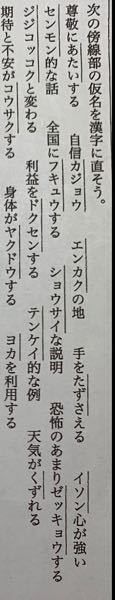 次の傍線部の仮名を漢字に直そう。
尊敬にあたいする　自信カジョウ　エンカクの地　手をたずさえる　イソン心が強い
センモン的な話　全国にフキュウする　ショウサイな説明　恐怖のあまりゼッキョウする
ジジコッコクと変わる　利益をドクセンする　テンケイ的な例　天気がくずれる
期待と不安がコウサクする　身体がヤクドウする　ヨカを利用する